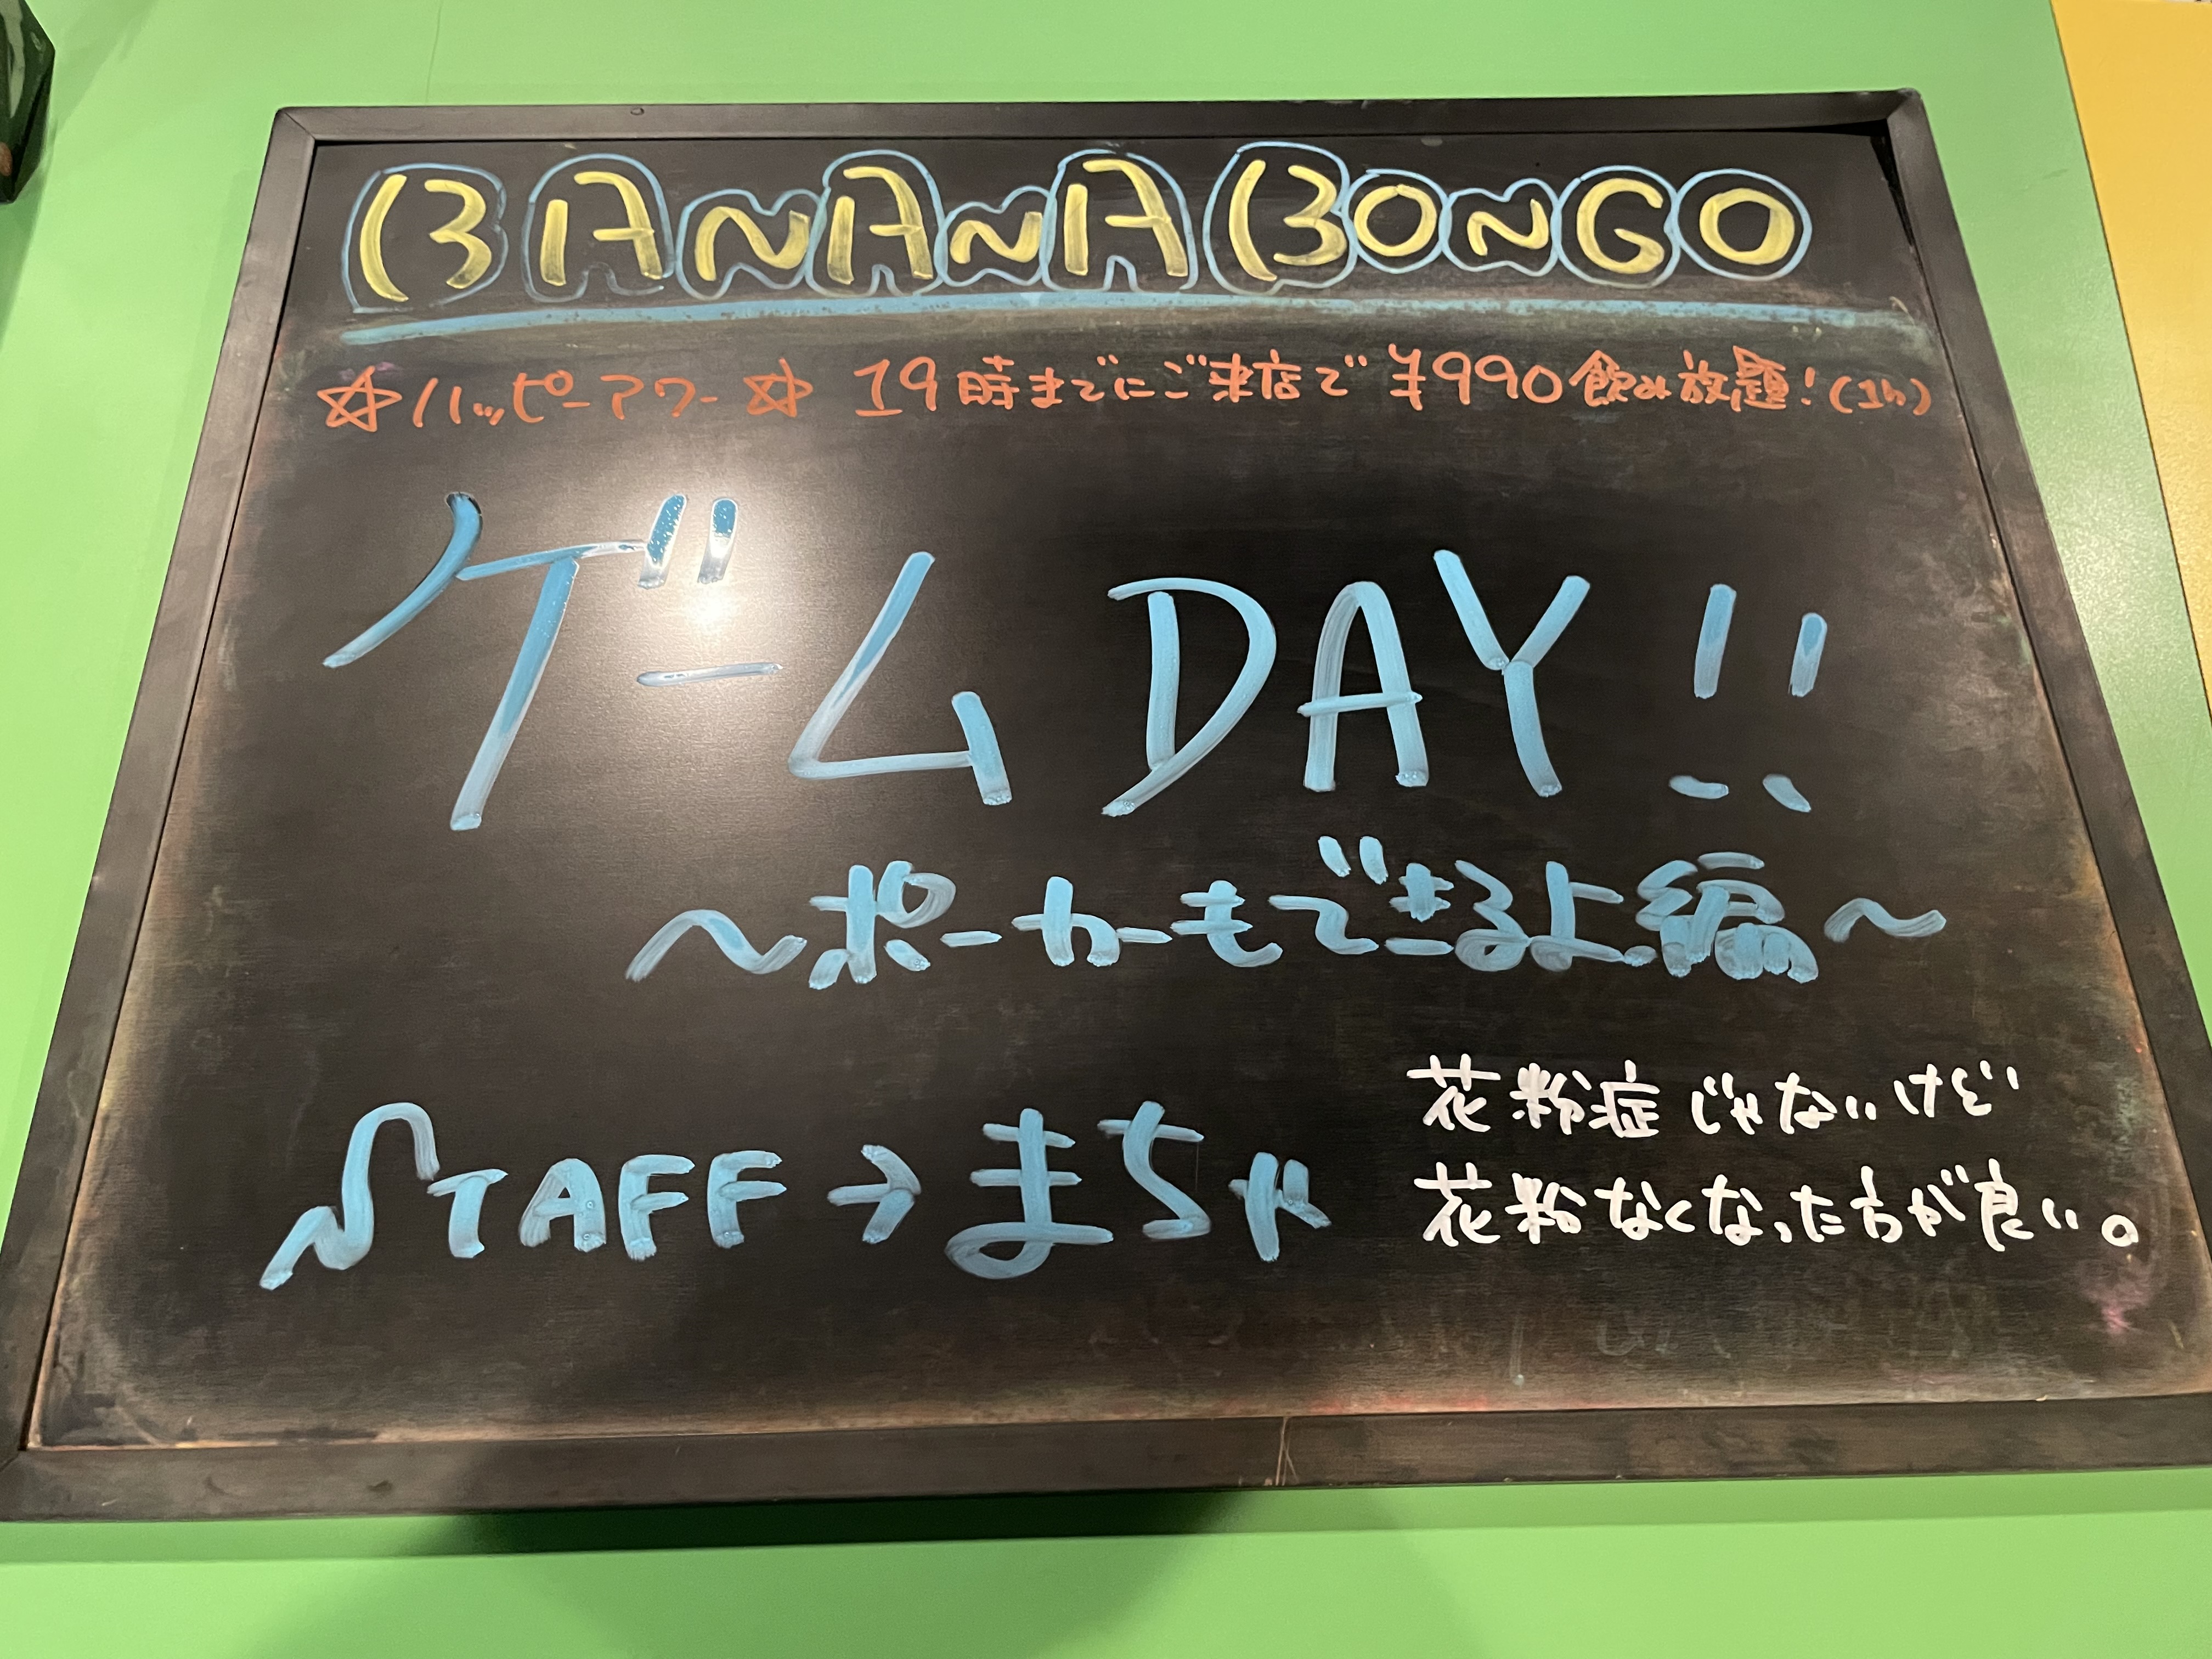 BANANA BONGO
☆ハッピーアワー☆ 19時までにご来店で ¥990 飲み放題!(1h)
ゲームDAY!!
～ポーカーもできるよ編～
STAFF→まちゃ
花粉症じゃないけど
花粉なくなった方が良い。